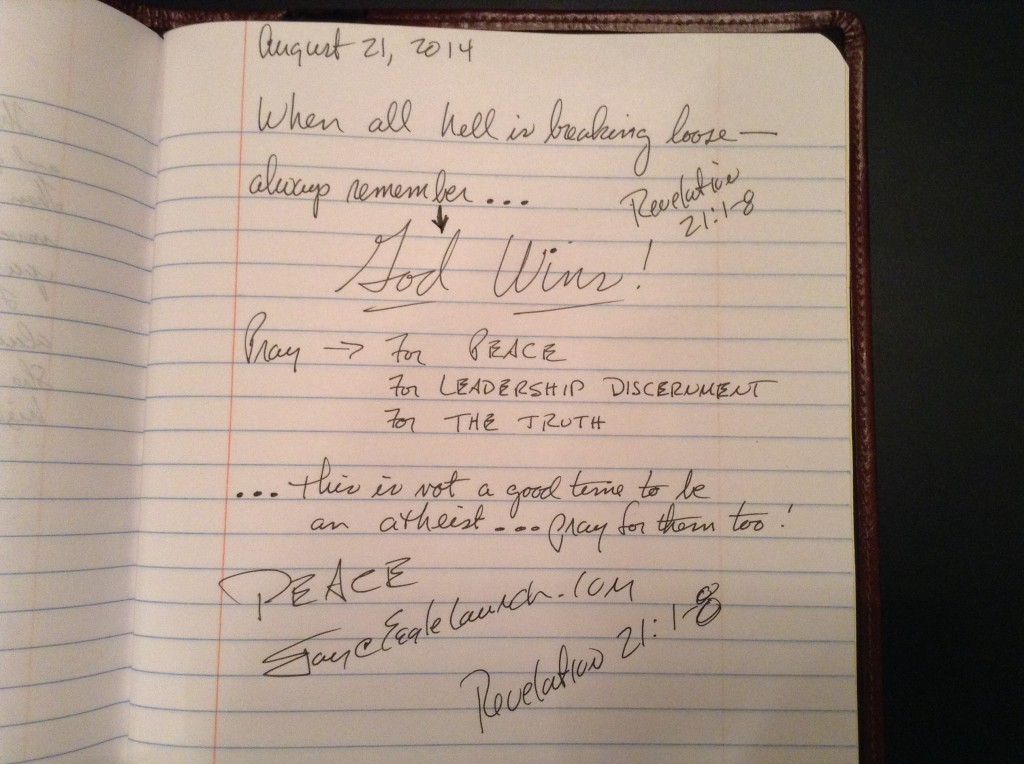 August 21, 2014
When all hell is breaking loose—
always remember...
Revelation
21:1-8
God Wins!
Pray → For PEACE
For LEADERSHIP DISCERNMENT
For THE TRUTH
... this is not a good time to be
an atheist... pray for them too!
PEACE
Jay@Eaglelaunch.com
Revelation 21:1-8